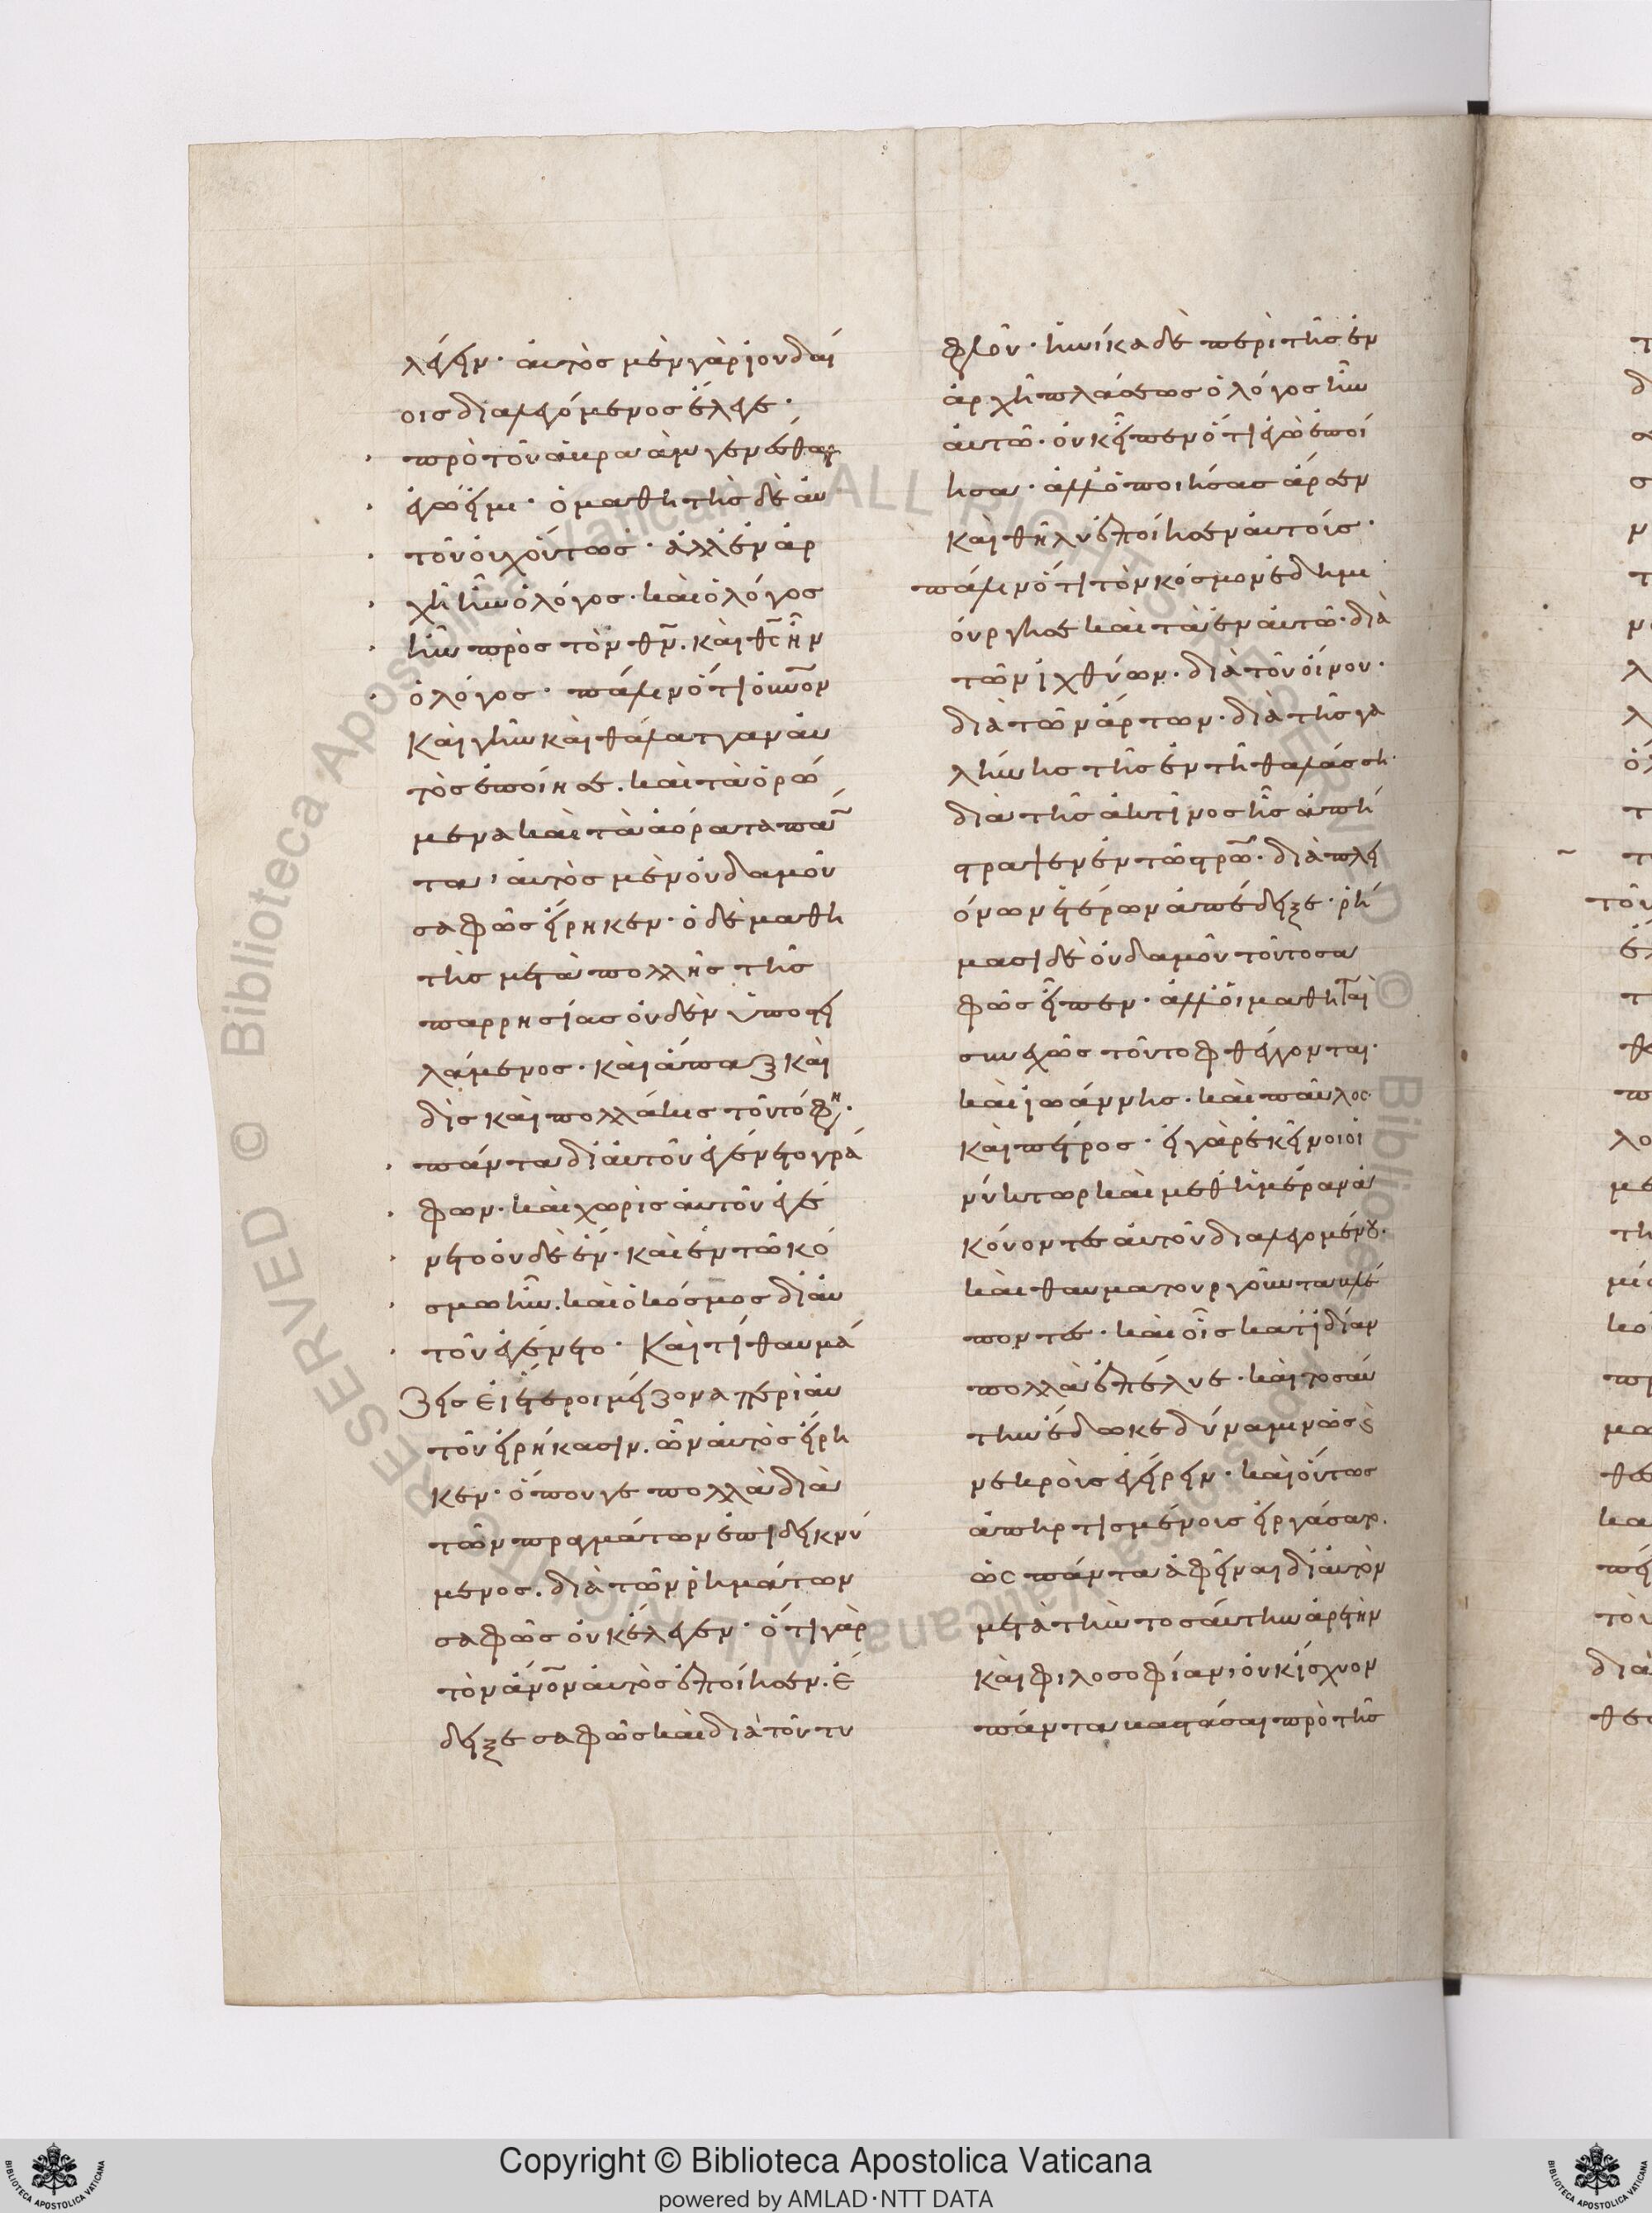 λέγειν· αὐτὸς μὲν γὰρ ἰουδαί
οις διαλεγόμενος ἔλεγε·
πρὸ τοῦ ἀβραὰμ γενέσθαι
ἐγώ εἰμι· ὁ μαθητὴς δὲ αὐ
τοῦ οὐχ οὕτως· ἀλλ' ἐν ἀρ
χῆ ἦν ὁ λόγος· καὶ ὁ λόγος
ἦν πρὸς τὸν θν. καὶ θς ἦν
ὁ λόγος· πάλιν ὅτι οὐνον
καὶ γῆν καὶ θάλατταν αὐ
τὸς ἐποίησε. καὶ τὰ ὁρώ
μενα καὶ τὰ ἀόρατα πάν
τα, αὐτὸς μὲν οὐδαμοῦ
σαφῶς εἴρηκεν· ὁ δὲ μαθη
τὴς μετὰ πολλῆς τῆς
παρρησίας οὐδὲν ὑποστει
λάμενος· καὶ ἅπαξ καὶ
δὶς καὶ πολλάκις τοῦτό φη·
πάντα δι' αὐτοῦ ἐγένετο γρά
φων· καὶ χωρὶς αὐτοῦ ἐγέ
νετο οὐδὲ ἕν· καὶ ἐν τῶ κό
σμω ἦν. καὶ ὁ κόσμος δι' αὐ
τοῦ ἐγένετο· Καὶ τί θαυμά
ζεις εἰ ἕτεροι μείζονα περὶ αὐ
τοῦ εἰρήκασιν. ὧν αὐτὸς εἴρη
κεν· ὅπουγε πολλὰ διὰ
τῶν πραγμάτων ἐπιδεικνύ
μενος. διὰ τῶν ῥημάτων
σαφῶς οὐκ ἔλεγεν· ὅτι γὰρ
τὸν ἄνον αὐτὸς ἐποίησεν. ἔ
δειξε σαφῶς καὶ διὰ τοῦ τυ
φλοῦ· ἡνίκα δὲ περὶ τῆς ἐν
ἀρχῆ πλάσεως ὁ λόγος ἦν
αὐτῶ· οὐκ εἶπεν ὅτι ἐγὼ ἐποί
ησα· ἀλλ' ὁ ποιήσας ἄρσεν
καὶ θῆλυ ἐποίησεν αὐτούς·
πάλιν ὅτι τὸν κόσμον ἐδημι
ούργησε καὶ τὰ ἐν αὐτῶ. διὰ
τῶν ἰχθύων. διὰ τοῦ οἴνου·
διὰ τῶν ἄρτων· διὰ τῆς γα
λήνης τῆς ἐν τῆ θαλάσση·
διὰ τῆς ἀκτῖνος ἧς ἀπή
στραψεν ἐν τῶ στρῶ· διὰ πλει
όνων ἑτέρων ἀπέδειξε· ῥή
μασι δὲ οὐδαμοῦ τοῦτο σα
φῶς εἶπεν· ἀλλ' οἱ μαθηταὶ
συνεχῶς τοῦτο φθέγγονται·
καὶ ἰωάννης. καὶ παῦλος
καὶ πέτρος· εἰ γὰρ ἐκεῖνοι οἱ
νύκτωρ καὶ μεθ' ἡμέραν ἀ
κούοντες αὐτοῦ διαλεγομένου·
καὶ θαυματουργοῦντα βλέ
ποντες· καὶ οἷς κατ' ἰδίαν
πολλὰ ἐπέλυε· καὶ τοσαύ
την ἔδωκε δύναμιν ὡς καὶ
νεκροὺς ἐγείρειν· καὶ οὕτως
ἀπηρτισμένους εἰργάσατο.
ὡς πάντα ἀφεῖναι δι' αὐτὸν
μετὰ τὴν τοσαύτην ἀρετὴν
καὶ φιλοσοφίαν, οὐκ ἴσχυον
πάντα βαστάσαι πρὸ τῆς